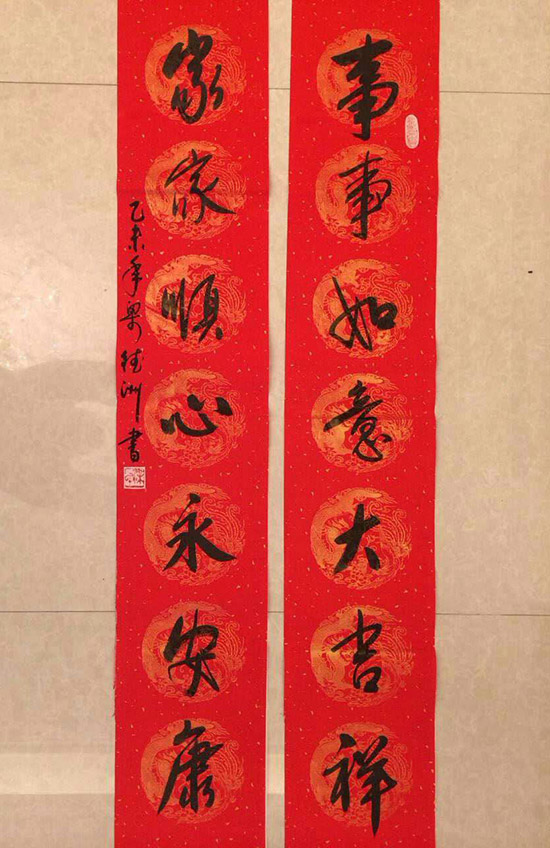 事事如意大吉祥
家家顺心永安康
乙未年梁德洲书